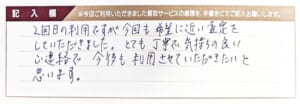 記入欄 ※今回ご利用いただきました買取サービスの感想を、手書きにてご記入お願いします。
2回目の利用ですが今回も希望に近い査定を
していただきました。とても丁寧で気持ちの良い
ご連絡で 今後も利用させていただきたいと
思います。